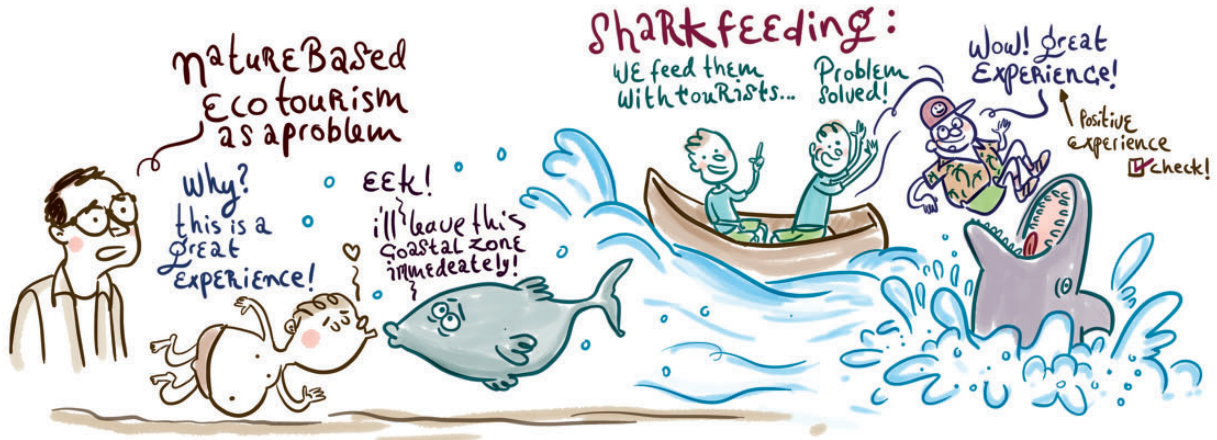 nature Based
Ecotourism
as a problem
Why?
this is a
great
Experience!
EEK!
i'll leave this
coastal zone
immedeately!
SharkfEEding:
WE feed them
with tourists...
Problem
solved!
Wow! great
Experience!
Positive
Experience
check!